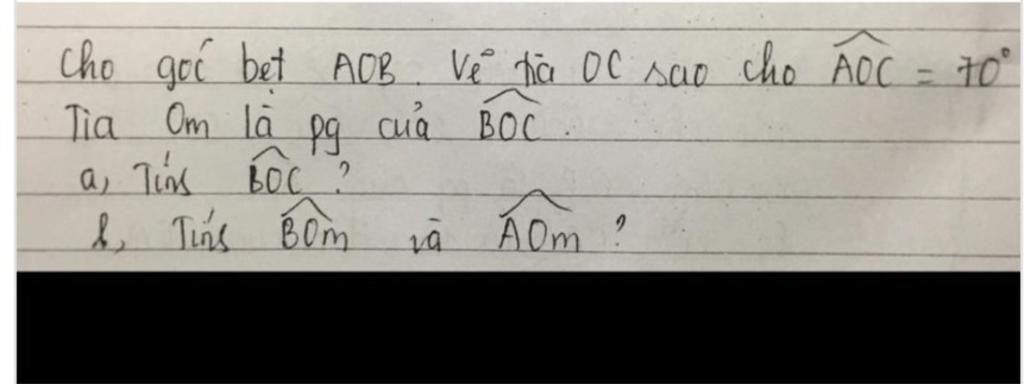 Cho góc bẹt AOB. Vẽ tia OC sao cho \widehat{AOC} = 70°
Tia Om là pg của \widehat{BOC}.
a, Tính \widehat{BOC} ?
b, Tính \widehat{BOm} và \widehat{AOm} ?